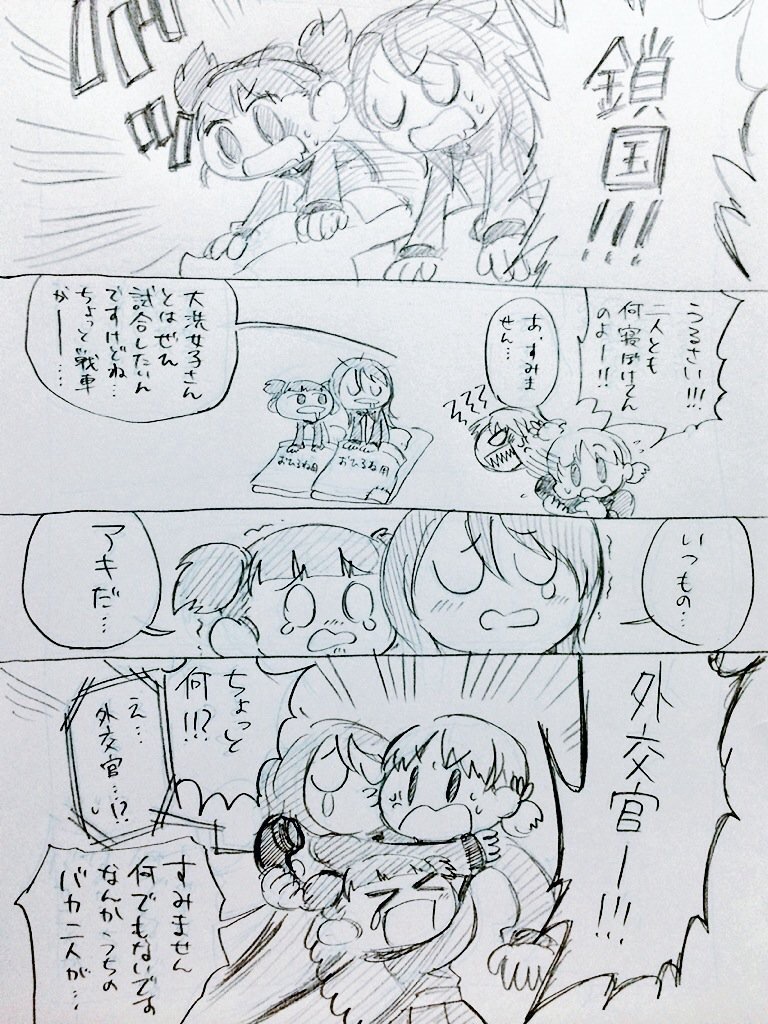 鎖
国
!!!
ガバッ
うるさい!!!
二人とも
何寝ぼけてん
のよー!!
あ、すみま
せん…
大洗女子さん
とはぜひ
試合したいん
ですけどね…
ちょっと戦車
がー……
おひるね用
おひるね用
いつもの…
アキだ…
外交官ー!!!
ちょっと
何!!?
え…
外交官…!?
すみません
何でもないです
なんかうちの
バカ二人が…